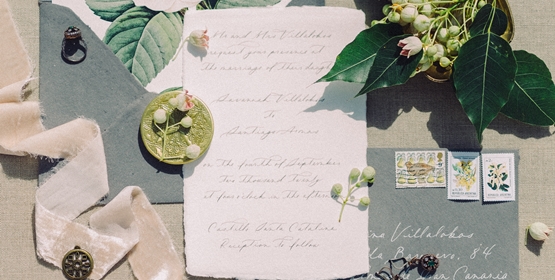 Mr and Mrs Villalobos
request your presence at
the marriage of their
Savannah Villalobos
To
Santiago
on the fourth of September
two thousand twenty
at four o'clock in the afternoon
Castillo Santa Catalina
Reception to follow
Villalobos
84
Gran Canaria